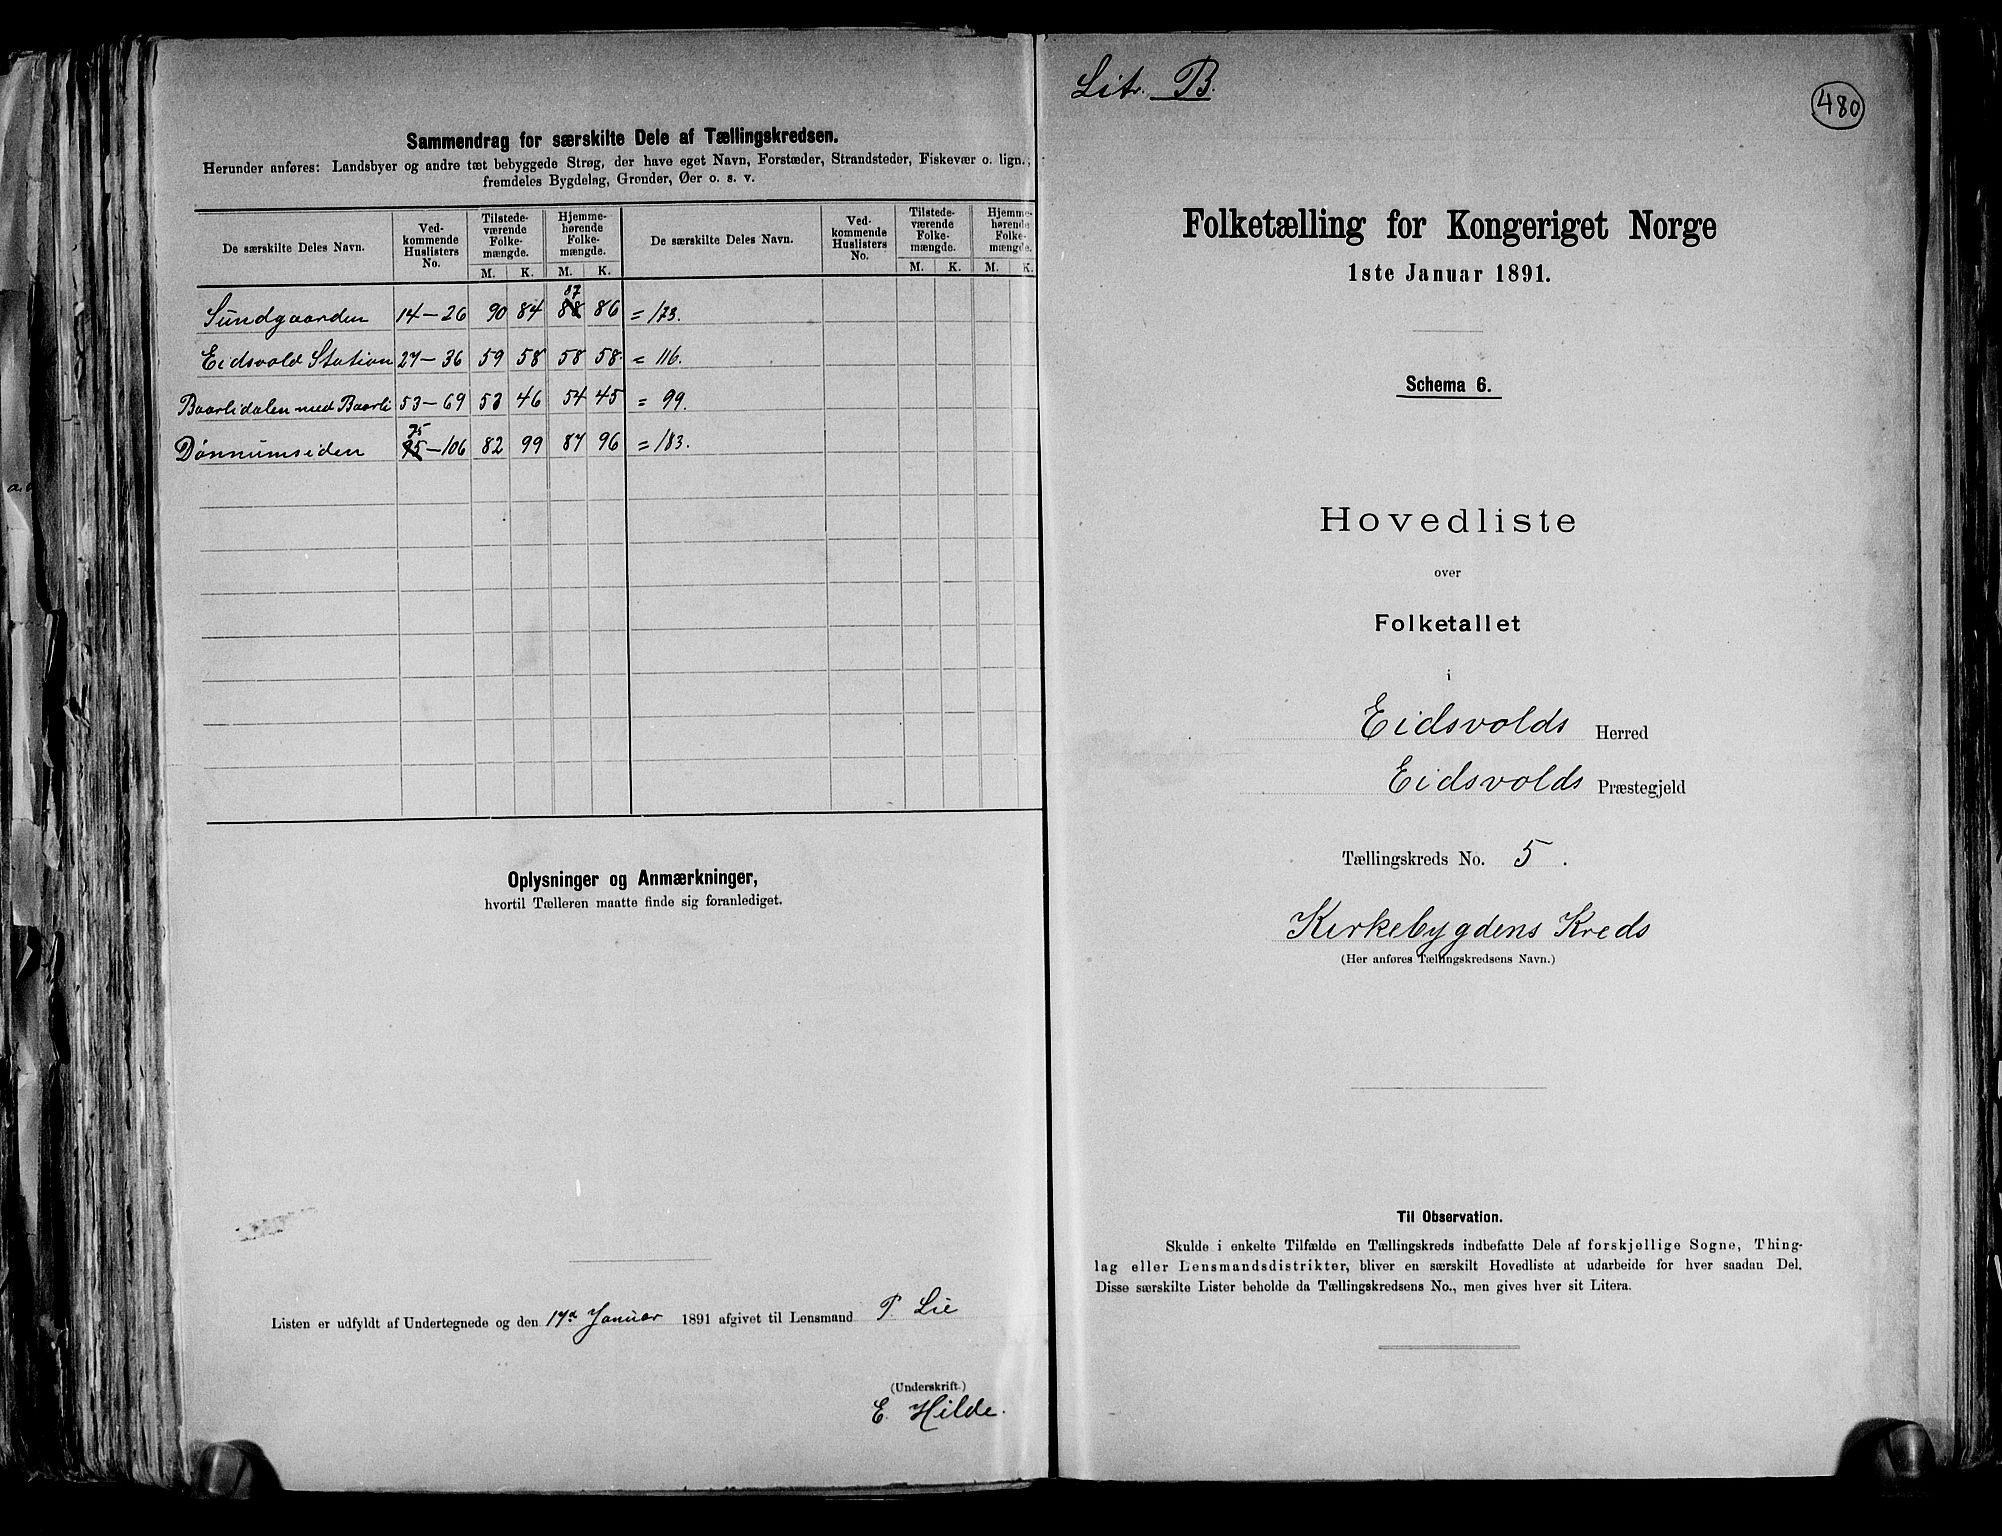 Sammendrag for særskilte Dele af Tællingskredsen.
Herunder anføres: Landsbyer og andre tæt bebyggede Strøg, der have eget Navn, Forstæder, Strandsteder, Fiskevær o. lign.;
fremdeles Bygdelag, Grender, Øer o. s. v.
De særskilte Deles Navn. Ved-kommende Huslisters No. Tilstede-værende Folke-mængde. Hjemme-hørende Folke-mængde. De særskilte Deles Navn. Ved-kommende Huslisters No. Tilstede-værende Folke-mængde. Hjemme-hørende Folke-mængde.
M. K. M. K. M. K. M. K.
87
Sundgaarden 14-26 90 84 88 86 = 173.
Eidsvold Station 27-36 59 58 58 58. = 116.
Baarlidalen med Baarli 53-69 53 46 54 45 = 99.
75
Dønnumsiden 95-106 82 99 87 96 = 183.
Oplysninger og Anmærkninger,
hvortil Tælleren maatte finde sig foranlediget.
Listen er udfyldt af Undertegnede og den 17de Januar 1891 afgivet til Lensmand P. Lie
(Underskrift.)
E. Hilde.
Litr. B.
480
Folketælling for Kongeriget Norge
1ste Januar 1891.
Schema 6.
Hovedliste
over
Folketallet
i
Eidsvolds Herred
Eidsvolds Præstegjeld
Tællingskreds No. 5.
Kirkebygdens Kreds
(Her anføres Tællingskredsens Navn.)
Til Observation.
Skulde i enkelte Tilfælde en Tællingskreds indbefatte Dele af forskjellige Sogne, Thing-
lag eller Lensmandsdistrikter, bliver en særskilt Hovedliste at udarbeide for hver saadan Del.
Disse særskilte Lister beholde da Tællingskredsens No., men gives hver sit Litera.